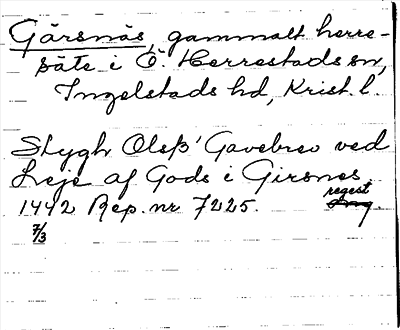 Gärsnäs, gammalt herre-
säte i Ö. Herrestads sn,
Ingelstads hd, Krist. l.
Stygh Olsß' Gavebrev ved
Leje af Gods i Girsnes
regest
1442 Rep. nr 7225.
7/3